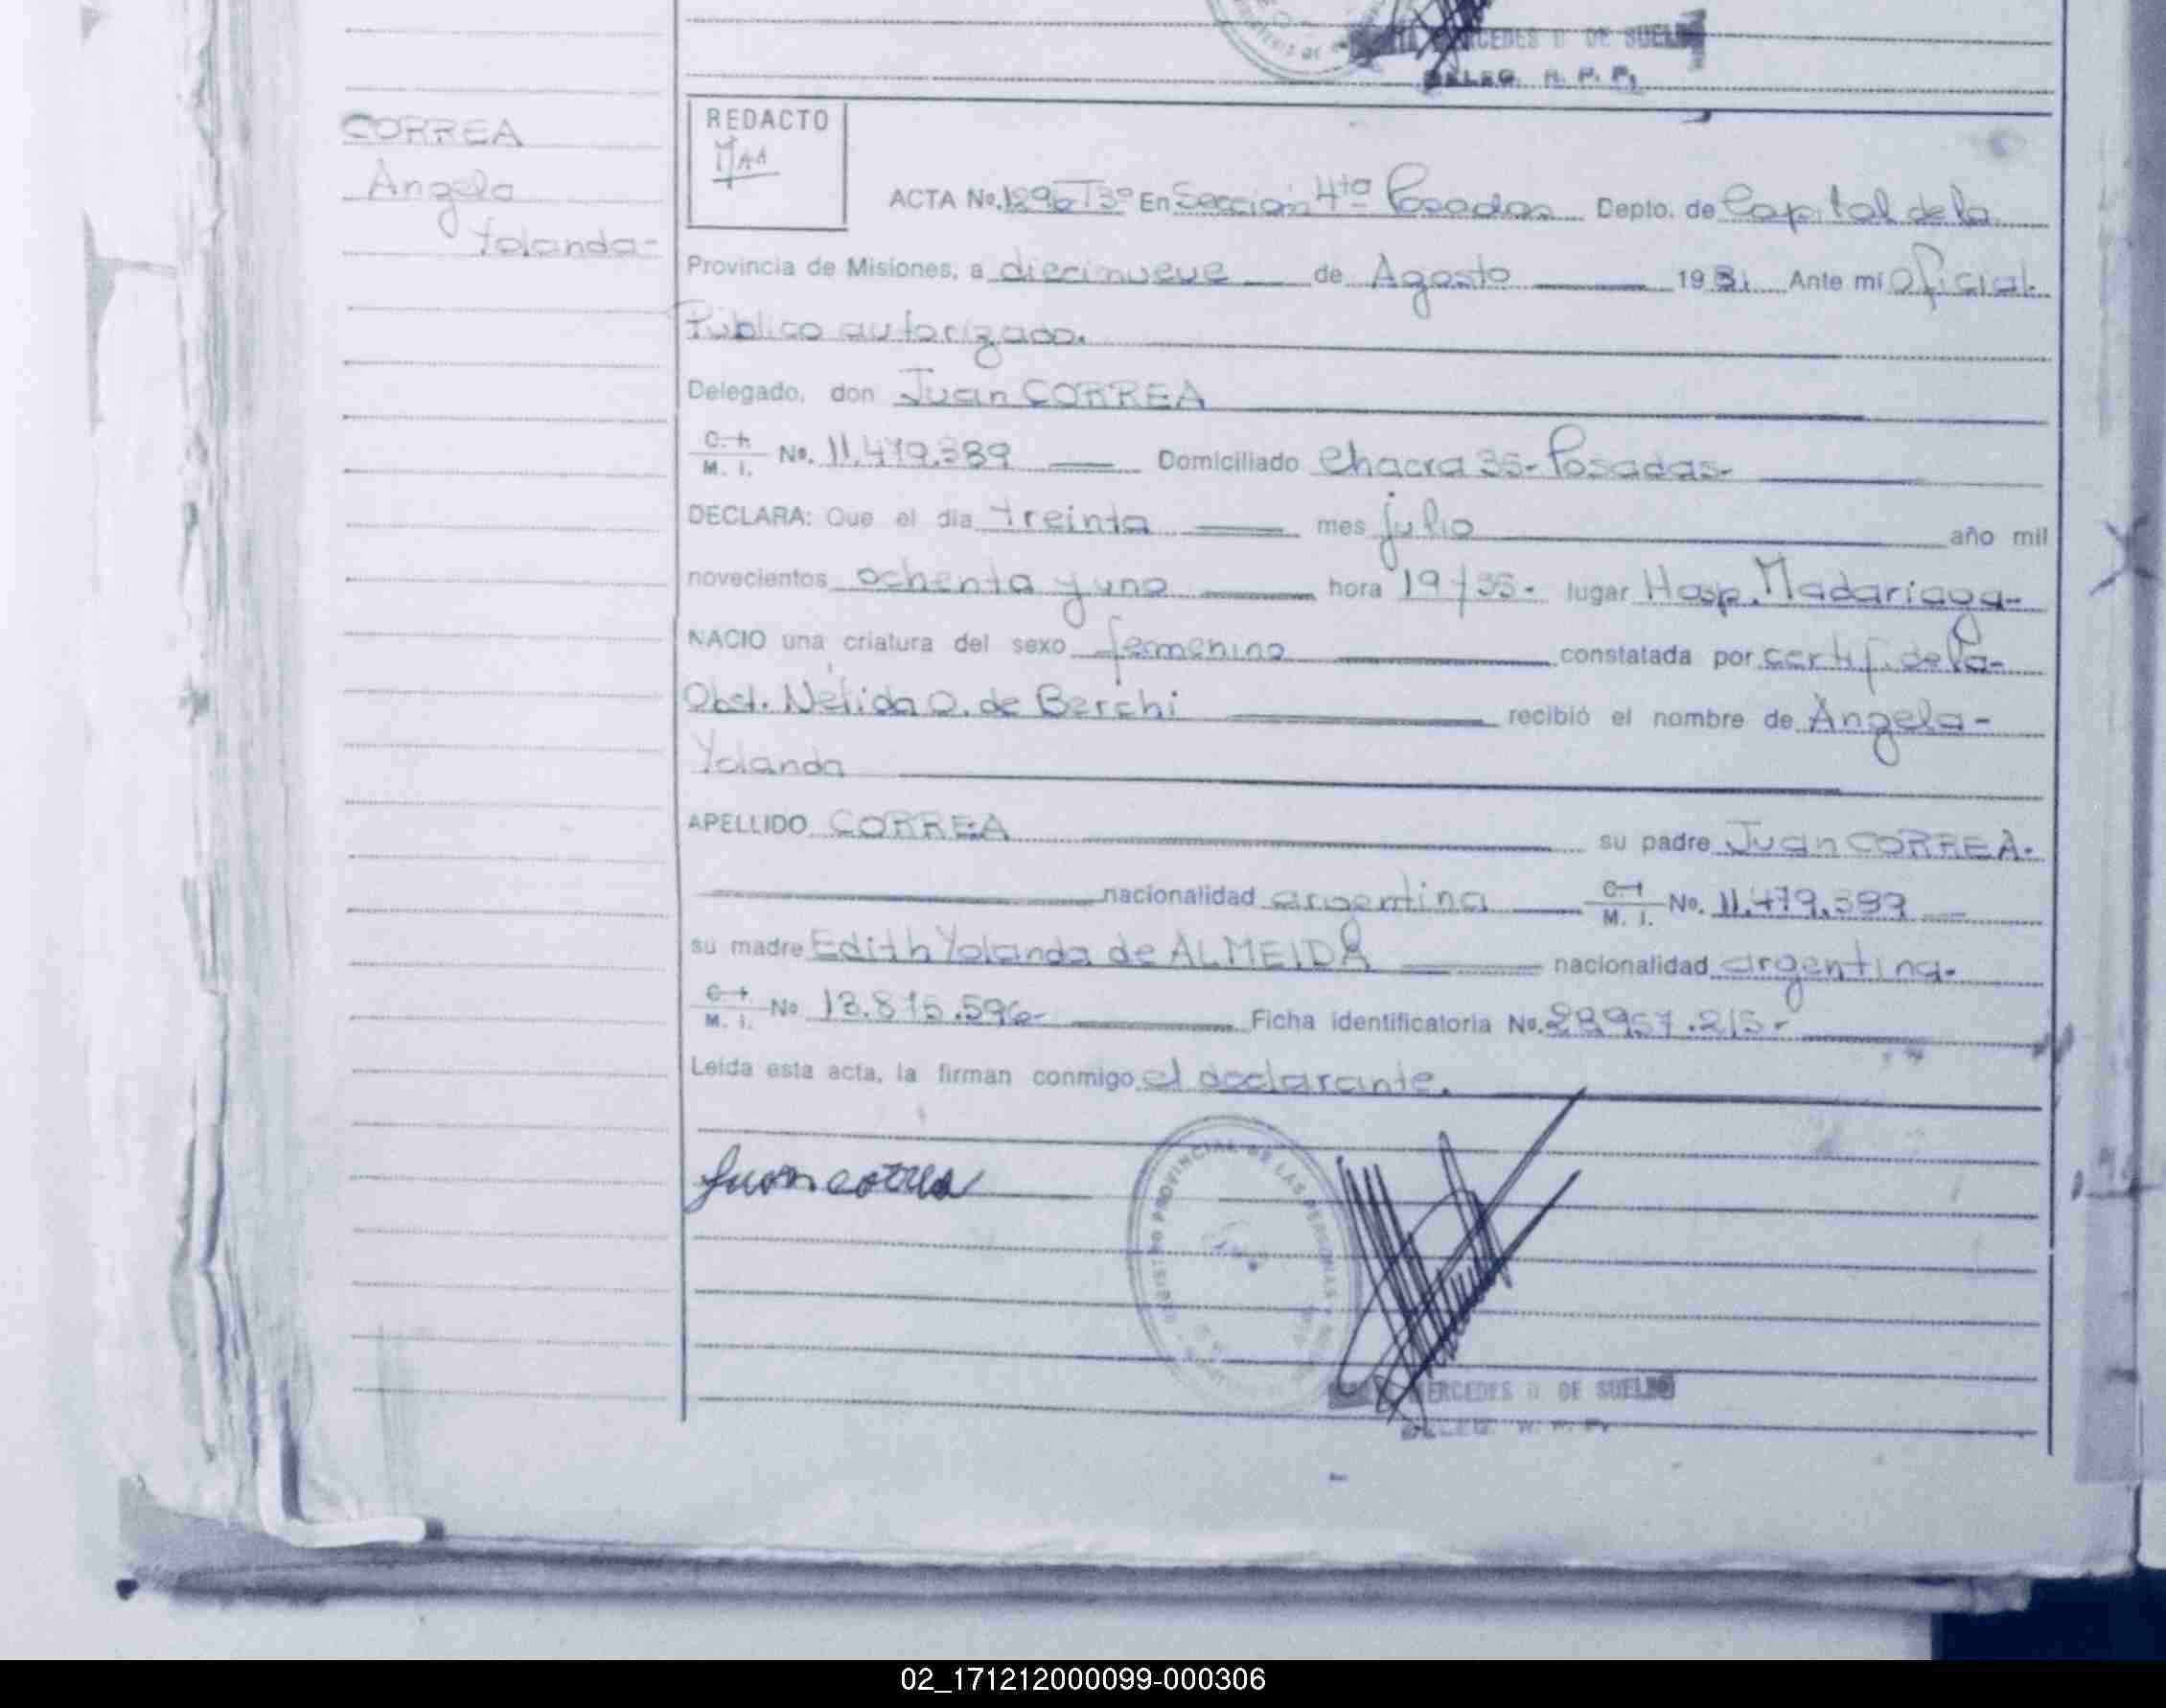 MERCEDES D. DE SUELDO
DELEG. R. P. P.
CORREA
Angela
Yolanda-
REDACTO
MAA
ACTA No. 1296 T3º En Sección 4ta Posadas Depto. de Capital de la
Provincia de Misiones, a diecinueve de Agosto 1981 Ante mí Oficial
Público autorizado.
Delegado, don Juan CORREA
C. I.
M. I. No. 11.479.389 Domiciliado Chacra 35- Posadas-
DECLARA: Que el día treinta mes julio año mil
novecientos ochenta y uno hora 19/35- lugar Hosp. Madariaga-
NACIO una criatura del sexo femenino constatada por certif. de la-
Obst. Nélida O. de Berchi recibió el nombre de Angela-
Yolanda
APELLIDO CORREA su padre Juan CORREA.
nacionalidad argentina C. I.
M. I. No. 11.479.389
su madre Edith Yolanda de ALMEIDA nacionalidad argentina.
C. I.
M. I. No 13.815.596- Ficha identificatoria No. 28.957.215-
Leída esta acta, la firman conmigo el declarante.
Juan correa
REGISTRO PROVINCIAL DE LAS PERSONAS
MERCEDES D. DE SUELDO
DELEG. R. P. P.
02_171212000099-000306